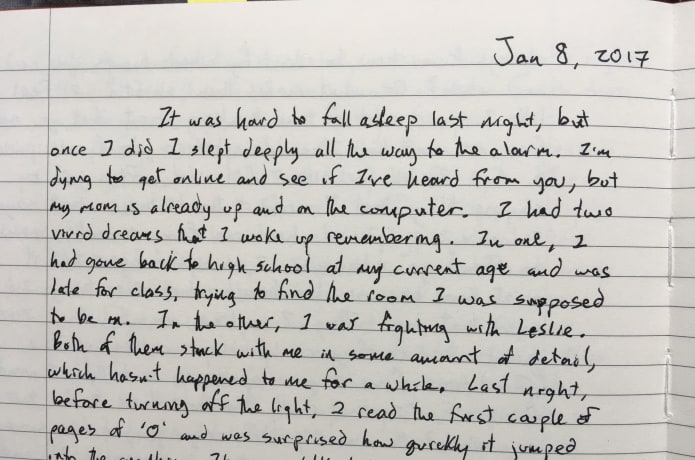 Jan 8, 2017
It was hard to fall asleep last night, but
once I did I slept deeply all the way to the alarm. I'm
dying to get online and see if I've heard from you, but
my mom is already up and on the computer. I had two
vivid dreams that I woke up remembering. In one, I
had gone back to high school at my current age and was
late for class, trying to find the room I was supposed
to be in. In the other, I was fighting with Leslie.
Both of them stuck with me in some amount of detail,
which hasn't happened to me for a while. Last night,
before turning off the light, I read the first couple of
pages of 'O' and was surprised how quickly it jumped
into the